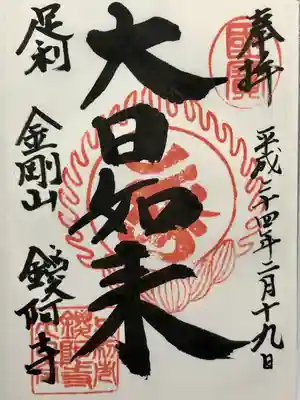 奉拝
平成二十四年二月十九日
大日如来
足利 金剛山 鑁阿寺